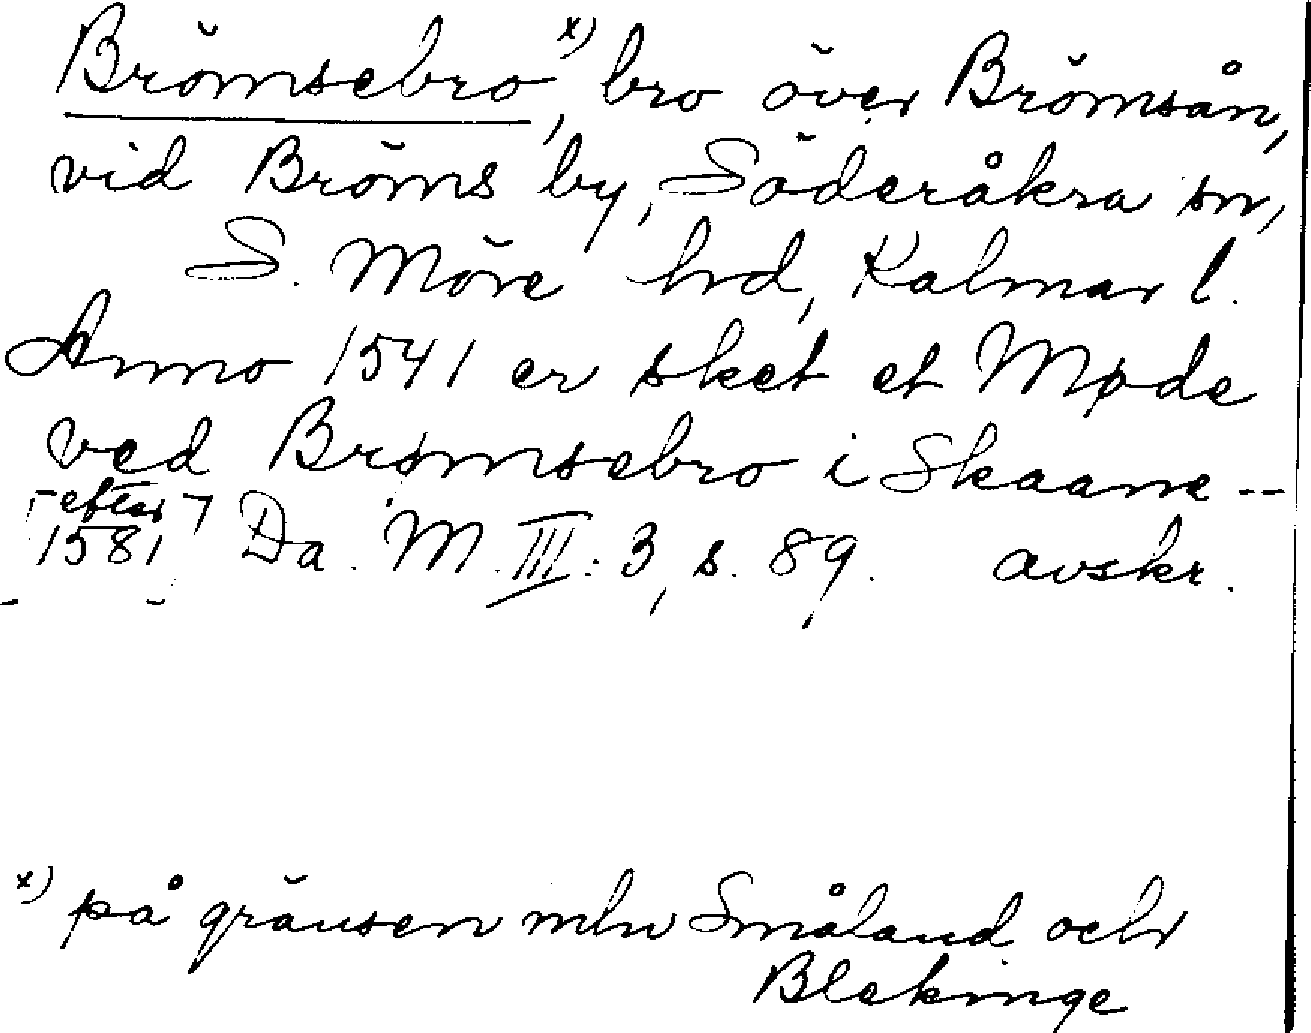 Brömsebro,x) bro över Brömsån,
vid Bröms by, Söderåkra sn,
S. Möre hrd, Kalmar l.
Anno 1541 er sket et Møde
ved Brømsebro i Skaane --
⌈efter⌉
1581 Da. M. III: 3, s. 89. avskr.
x) på gränsen mln Småland och
Blekinge